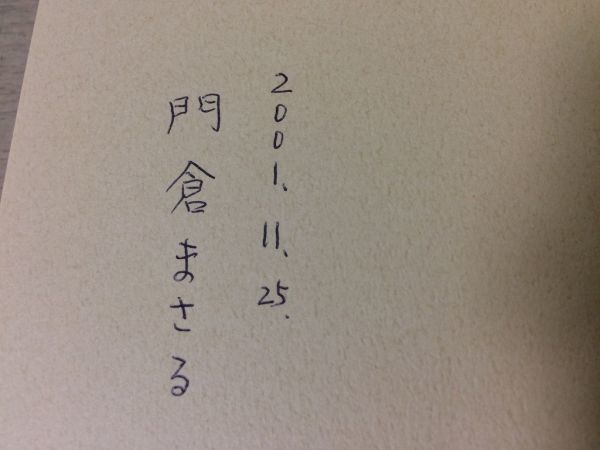 2001、11、25.
門倉まさる